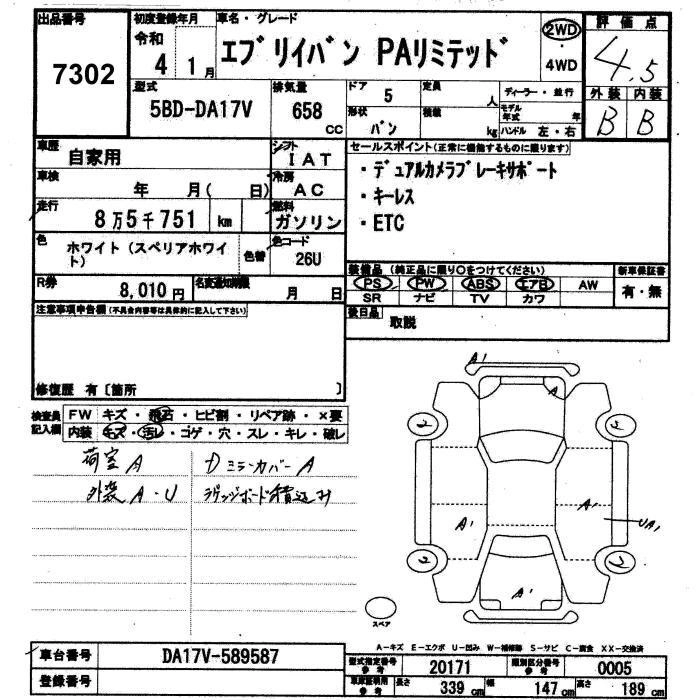 出品番号
7302
初度登録年月
令和
4 1月
車名・グレード
エブリイバン PAリミテッド
2WD
・
4WD
評価点
4.5
外装 内装
B B
型式
5BD-DA17V
排気量
658
CC
ドア
5
形状
バン
定員
人
積載
kg
ディーラー・並行
モデル
年式 年
ハンドル 左・右
車歴
自家用
シフト
IAT
車検
年 月( 日)
冷房
AC
走行
8万5千751 km
燃料
ガソリン
色
ホワイト(スペリアホワイト)
色替
色コード
26U
R券
8,010円
名変通知期限
月 日
セールスポイント(正常に機能するものに限ります)
・デュアルカメラブレーキサポート
・キーレス
・ETC
装備品(純正品に限り○をつけてください)
PS PW ABS エアB AW
SR ナビ TV カワ
新車保証書
有・無
後日品
取説
注意事項申告欄(不具合内容等は具体的に記入して下さい)
修復歴 有〔箇所 〕
検査員
記入欄
FW キズ・飛石・ヒビ割・リペア跡・×要
内装 キズ・汚レ・コゲ・穴・スレ・キレ・破レ
荷室 A
外装 A・U
D ミラーカバー A
ラゲッジボード積込み
A1
A
A1
A1
UA1
A1
スペア
A-キズ E-エクボ U-凹み W-補修跡 S-サビ C-腐食 XX-交換済
車台番号
DA17V-589587
登録番号
型式指定番号
参考
20171
類別区分番号
参考
0005
車庫証明用
参考
長さ 339 cm 幅 147 cm 高さ 189 cm